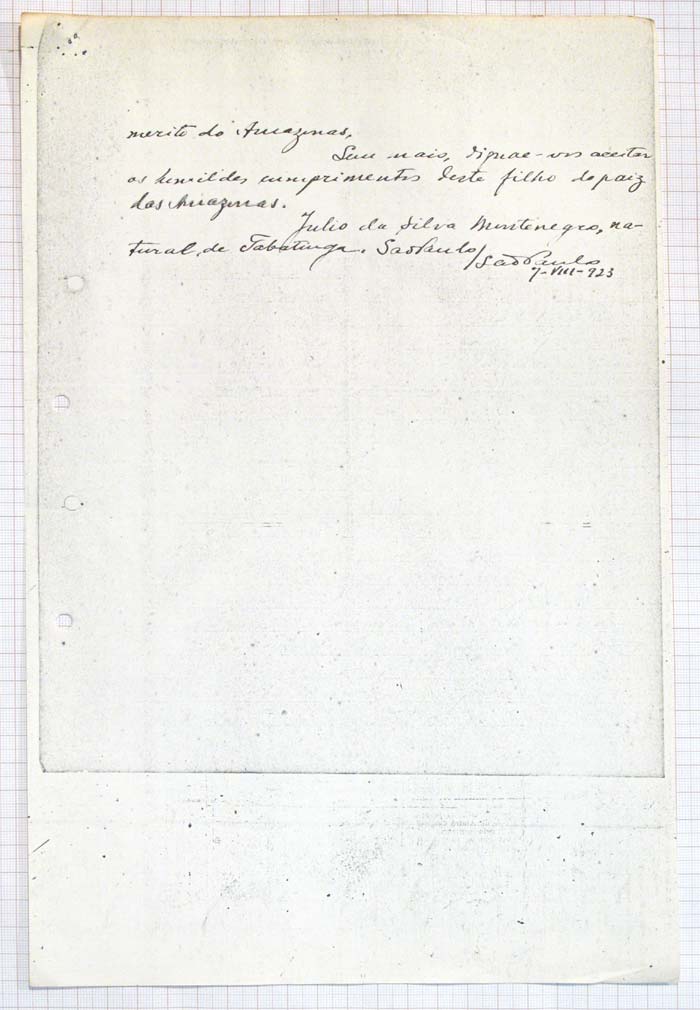 merito do Amazonas.
Sem mais, dignae-vos aceitar
os humildes cumprimentos deste filho do paiz
das Amazonas.
Julio da Silva Montenegro, na-
tural, de Tabatinga. Sao Paulo/Sao Paulo
7-VIII-923